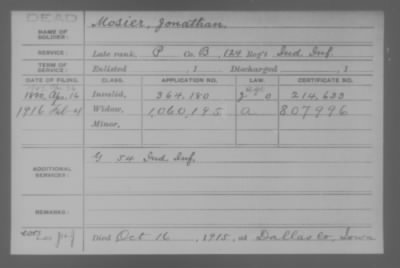 DEAD
NAME OF SOLDIER: Mosier, Jonathan.
SERVICE: Late rank, P Co. B, 124 Reg't Ind Inf.
TERM OF SERVICE: Enlisted , 1 Discharged , 1
DATE OF FILING. CLASS. APPLICATION NO. LAW. CERTIFICATE NO.
Apr. 16 Invalid, 364.180 214,633
1916 Feb-4 Widow, 1,060,195 a 807996
Minor,
ADDITIONAL SERVICES: G 54 Ind Inf.
REMARKS:
Died Oct 16, 1915, at Dallas Co, Iowa